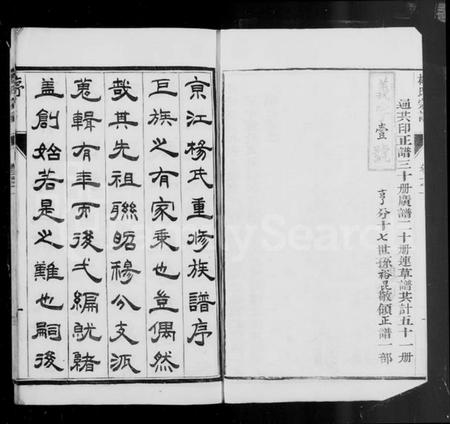 楊氏家譜
義字
壹號
通共印正譜三十册廣譜二十册連草譜共計五十一册
亨分十七世孫裕昆敬領正譜一部
京江楊氏重修族譜序
巨族之有家乘也豈偶然
哉其先祖聯昭穆分支派
蒐輯有年而後弋編就緒
蓋創始若是之難也嗣後